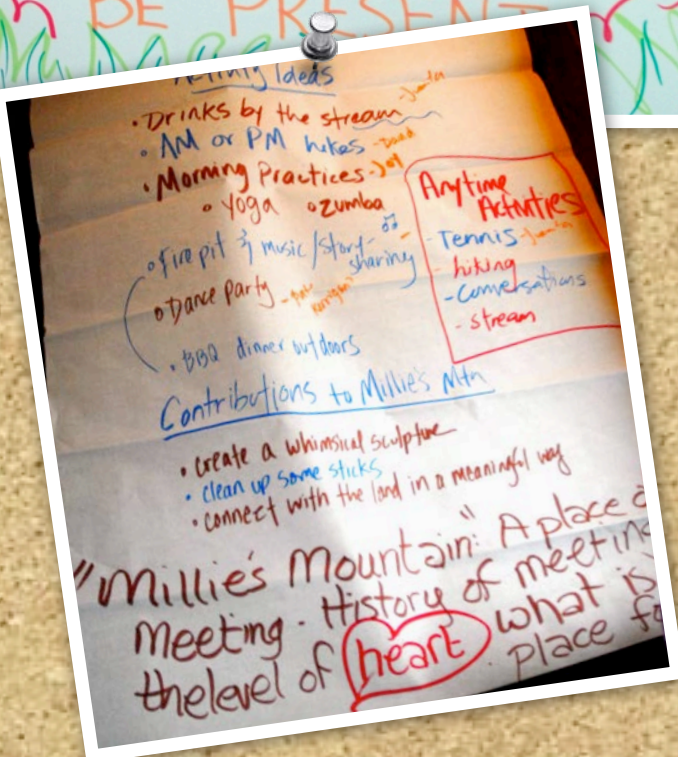 BE PRESENT
Ideas
• Drinks by the stream
• AM or PM hikes
• Morning Practices - Joy
• Yoga • Zumba
• Fire pit & music / story-
sharing
• Dance Party -
• BBQ dinner outdoors
Anytime
Activities
- Tennis -
- hiking
- Conversations
- stream
Contributions to Millie's Mtn
• create a whimsical sculpture
• clean up some sticks
• connect with the land in a meaningful way
"Millie's Mountain": A place
Meeting. History of meeting
the level of heart what is
place